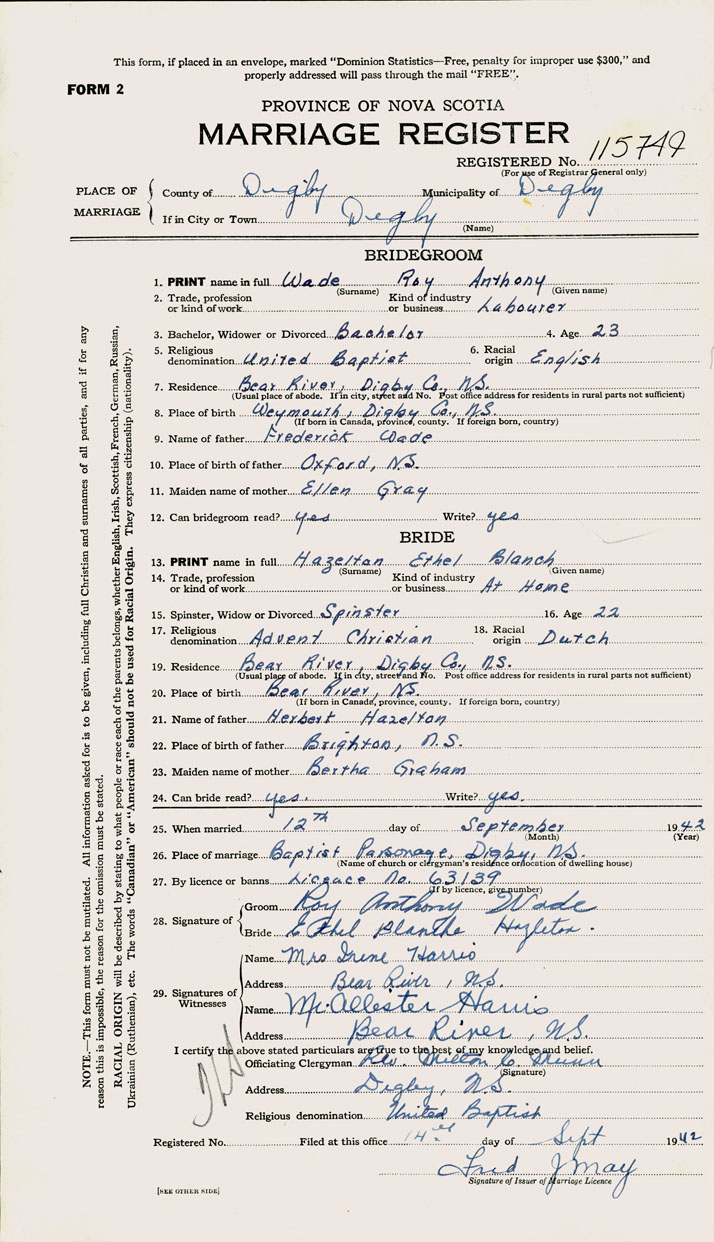 This form, if placed in an envelope, marked "Dominion Statistics—Free, penalty for improper use $300," and
properly addressed will pass through the mail "FREE".
FORM 2
PROVINCE OF NOVA SCOTIA
MARRIAGE REGISTER
REGISTERED No. 115749
(For use of Registrar General only)
PLACE OF MARRIAGE
County of Digby Municipality of Digby
If in City or Town Digby
(Name)
BRIDEGROOM
1. PRINT name in full Wade Roy Anthony
(Surname) (Given name)
2. Trade, profession or kind of work Kind of industry or business Labourer
3. Bachelor, Widower or Divorced Bachelor 4. Age 23
5. Religious denomination United Baptist 6. Racial origin English
7. Residence Bear River, Digby Co., N.S.
(Usual place of abode. If in city, street and No. Post office address for residents in rural parts not sufficient)
8. Place of birth Weymouth, Digby Co., N.S.
(If born in Canada, province, county. If foreign born, country)
9. Name of father Frederick Wade
10. Place of birth of father Oxford, N.S.
11. Maiden name of mother Ellen Gray
12. Can bridegroom read? yes Write? yes
BRIDE
13. PRINT name in full Hazelton Ethel Blanch
(Surname) (Given name)
14. Trade, profession or kind of work Kind of industry or business At Home
15. Spinster, Widow or Divorced Spinster 16. Age 22
17. Religious denomination Advent Christian 18. Racial origin Dutch
19. Residence Bear River, Digby Co., N.S.
(Usual place of abode. If in city, street and No. Post office address for residents in rural parts not sufficient)
20. Place of birth Bear River, N.S.
(If born in Canada, province, county. If foreign born, country)
21. Name of father Herbert Hazelton
22. Place of birth of father Brighton, N.S.
23. Maiden name of mother Bertha Graham
24. Can bride read? yes. Write? yes.
25. When married 12th day of September 1942
(Month) (Year)
26. Place of marriage Baptist Parsonage, Digby, N.S.
(Name of church or clergyman's residence or location of dwelling house)
27. By licence or banns Licence No. 63139
(If by licence, give number)
28. Signature of
Groom Roy Anthony Wade
Bride Ethel Blanche Hazleton.
29. Signatures of Witnesses
Name Mrs Irene Harris
Address Bear River, N.S.
Name McAllester Harris
Address Bear River, N.S.
I certify the above stated particulars are true to the best of my knowledge and belief.
Officiating Clergyman Rev. Milton C.
(Signature)
Address Digby, N.S.
Religious denomination United Baptist
Registered No. Filed at this office 14th day of Sept 1942
Fred J May
Signature of Issuer of Marriage Licence
[SEE OTHER SIDE]
NOTE.—This form must not be mutilated. All information asked for is to be given, including full Christian and surnames of all parties, and if for any
reason this is impossible, the reason for the omission must be stated.
RACIAL ORIGIN will be described by stating to what people or race each of the parents belongs, whether English, Irish, Scottish, French, German, Russian,
Ukrainian (Ruthenian), etc. The words "Canadian" or "American" should not be used for Racial Origin. They express citizenship (nationality).